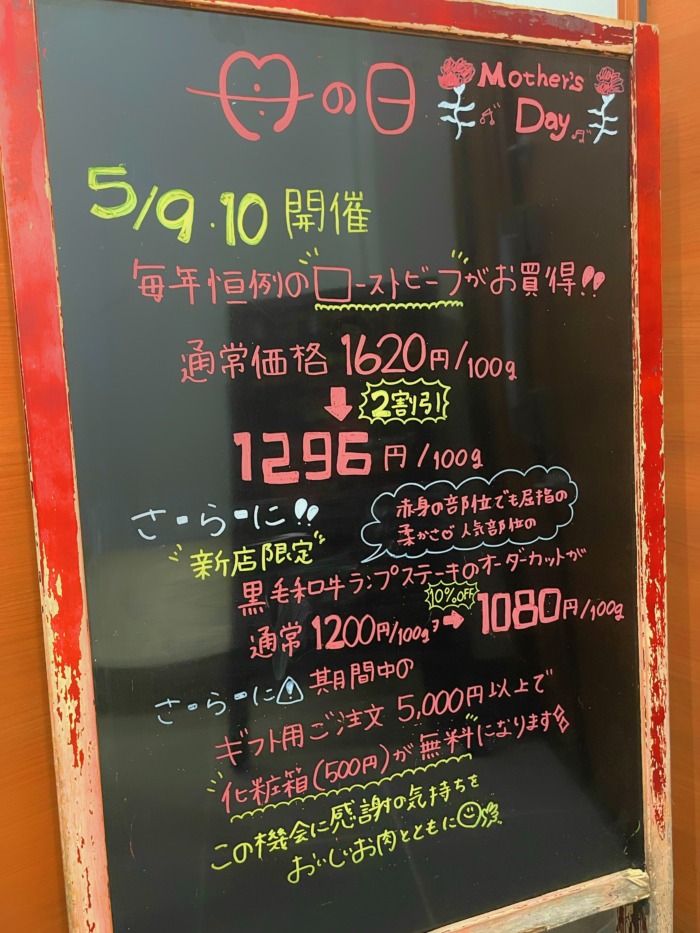 母の日 Mother's Day
5/9.10 開催
毎年恒例のローストビーフがお買得!!
通常価格 1620円/100g
2割引
1296円/100g
さ-ら-に!!
新店限定
赤身の部位でも屈指の
柔かさ♡人気部位の
黒毛和牛ランプステーキのオーダーカットが
10%OFF
通常1200円/100g→1080円/100g
さ-ら-に 期間中の
ギフト用ご注文 5,000円以上で
化粧箱(500円)が無料になります
この機会に感謝の気持ちを
おいしいお肉とともに